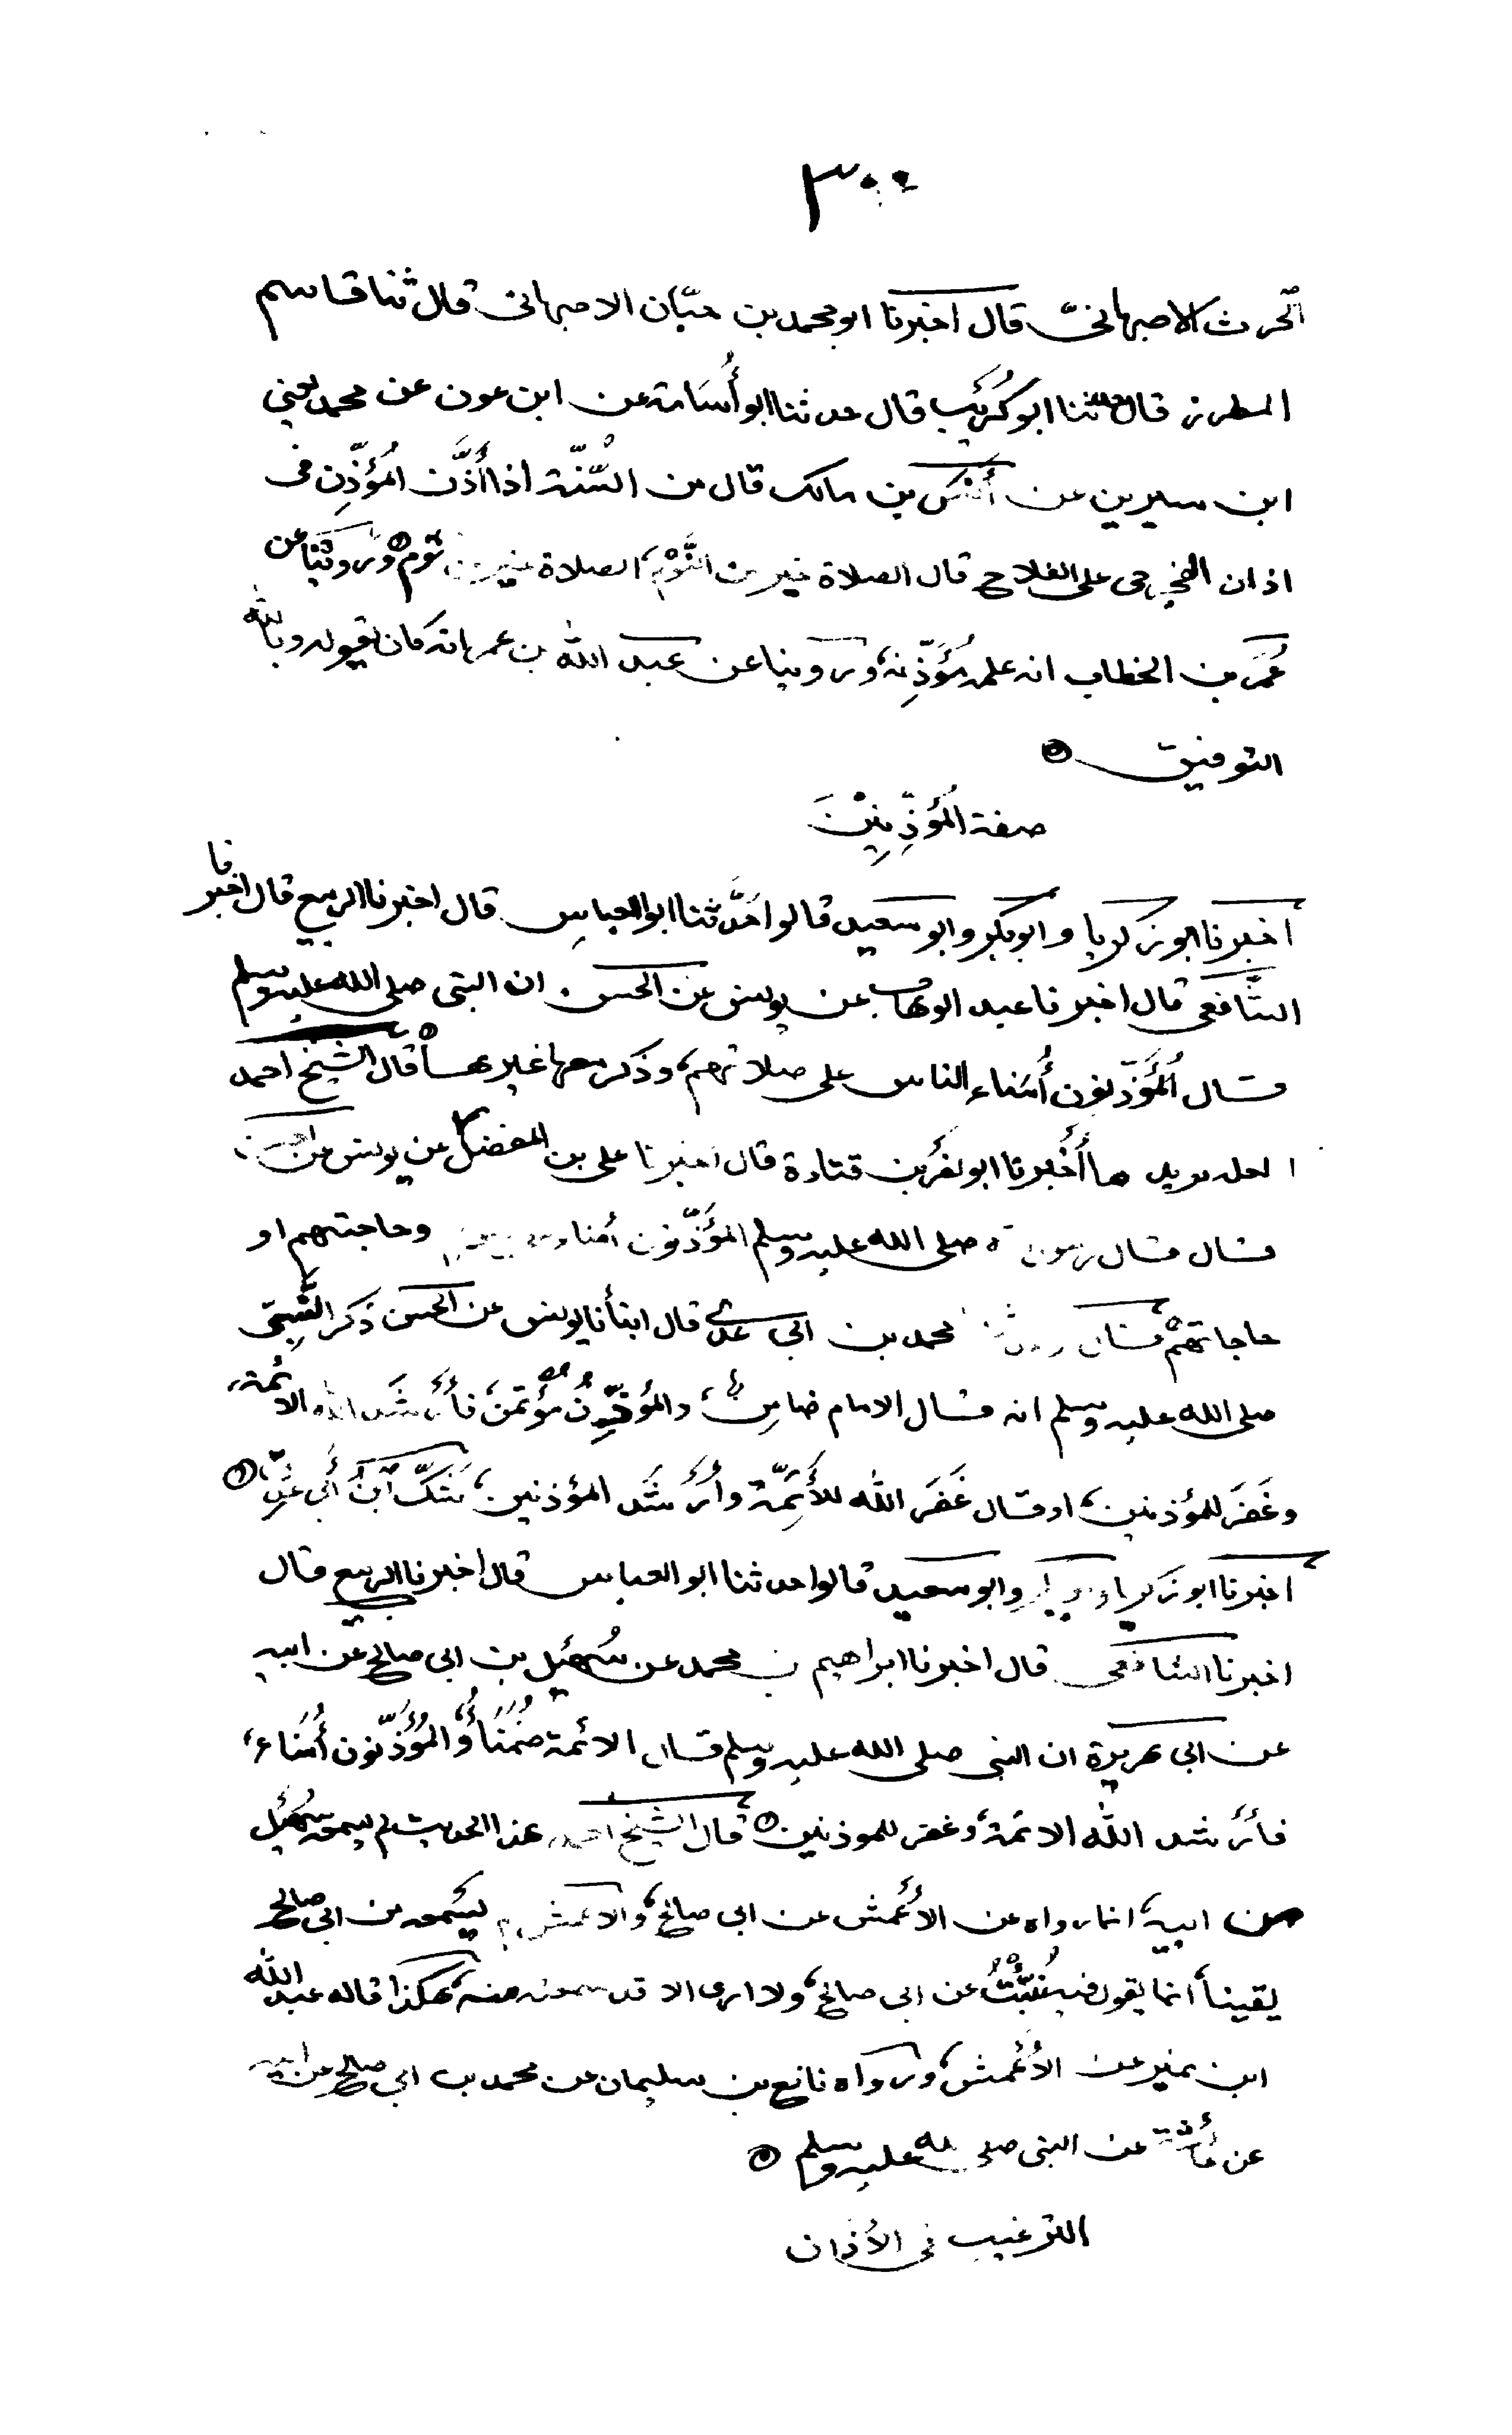 ٣٠٠
الحرث الاصبهاني قال اخبرنا ابو محمد بن حيّان الاصبهاني قال ثنا قاسم
المطرز قال حدثنا ابو كُرَيْب قال حدثنا ابو أُسَامة عن ابن عون عن محمد يعني
ابن سيرين عن أنَس بن مالك قال من السُّنّة اذا أذَّن المُؤَذِّن في
اذان الفجر حي على الفلاح قال الصلاة خير من النَّوْم، الصلاة خير من النوم ورَوينا عن
عُمَر بن الخطاب انه علمه مُؤَذِّنه، وروينا عن عبد الله بن عمر انه كان يقوله وبالله
التوفيق
صفة المُؤَذِّنِيْنَ
اخبرنا ابو زكريا وابو بكر وابو سعيد قالوا حَدَّثنا ابو العباس قال اخبرنا الربيع قال اخبرنا
الشَّافعي قال اخبرنا عبد الوهاب عن يونس عن الحسن ان النبي صلى الله عليه وسلم
قال المُؤَذّنون أُمَناء الناس على صلاتهم، وذكر معها غيرها قال الشيخ احمد
لعله يريد ما أَخْبرنا ابو نصر بن قتادة قال اخبرنا علي بن المفضل عن يونس عن الحسن
قال قال رسول صلى الله عليه وسلم المُؤَذّنون أمنا وحاجتهم او
حاجاتهم محمد بن ابي عدي قال انبأنا يونس عن الحسن ذكر النَّبِيّ
صلى الله عليه وسلم انه قال الامام ضامِن، والمُؤَذِّنُ مُؤْتمن، فأرْشَد الله الائمة،
وغَفَر للمؤذنين، او قال غَفَر الله للأَئِمَّة وأرْشَد المؤذنين، شَكَّ ابنُ أَبي عَدِيّ
اخبرنا ابو زكريا وابو بكر وابو سعيد قالوا حدثنا ابو العباس قال اخبرنا الربيع قال
اخبرنا الشافعي قال اخبرنا ابراهيم بن محمد عن سُهَيْل بن ابي صالح عن ابيه
عن ابي هريرة ان النبي صلى الله عليه وسلم قال الائمة ضُمَنَاُ والمُؤَذّنون أُمَناء،
فأَرْشد الله الائمة، وغفر للموذنين قال الشيخ احمد هذا الحديث لم يسمعه سُهَيْل
من ابيه، انما رواه عن الأَعْمش عن ابي صالح، والاعمش لم يَسْمعه من ابي صالح
يقيناً انما يقول فيه نُبِّئْتُ عن ابي صالح، ولا ارى الا قد سمعته منه، هكذا قاله عبد الله
ابن نمير عن الأَعْمش، ورواه نافع بن سليمان عن محمد بن ابي صالح عن ابيه
عن عائشة عن النبي صلى الله عليه وسلم
الترغيب في الأذان